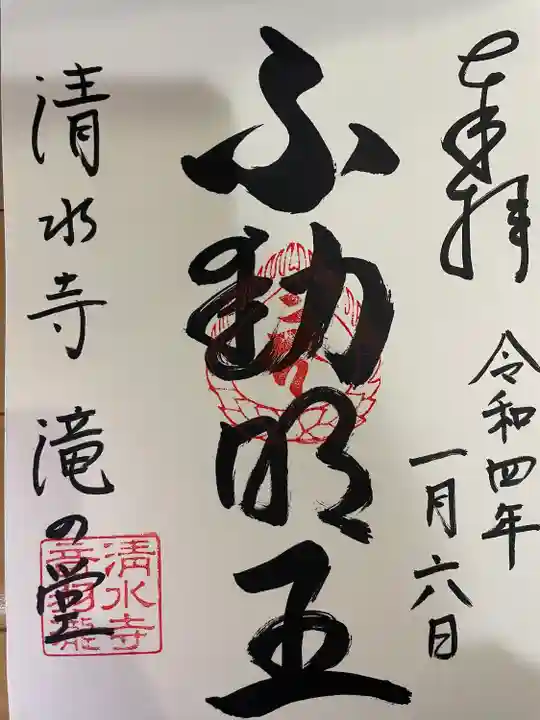 奉拝
令和四年
一月六日
不動明王
清水寺 滝の堂
清水寺
音羽瀧